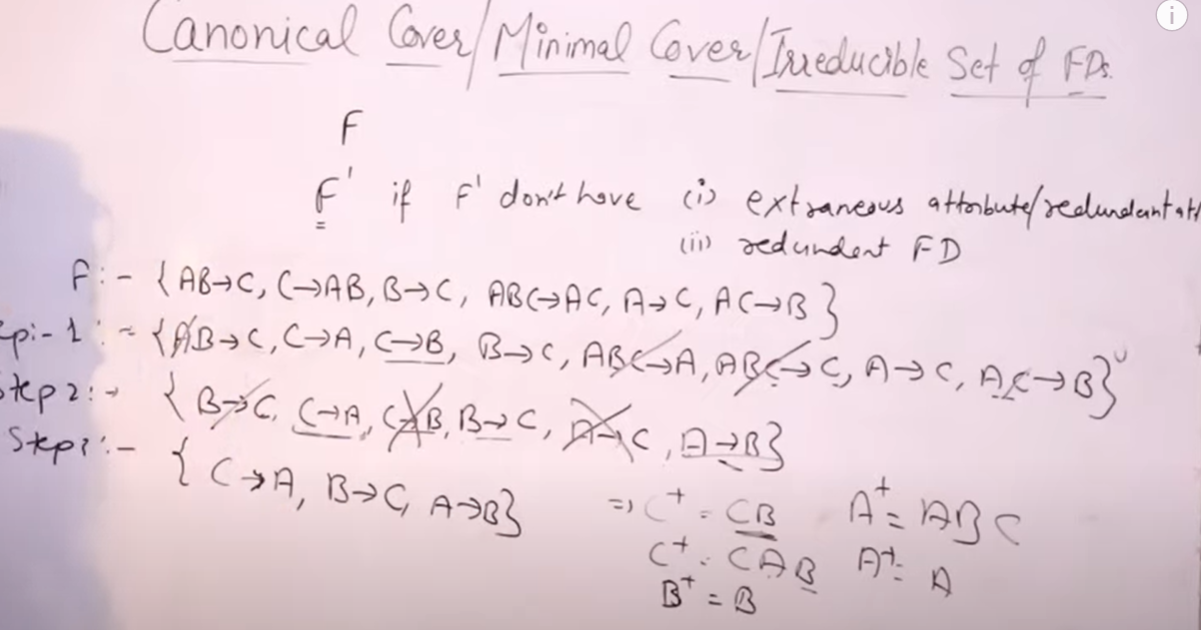 Canonical Cover/Minimal Cover/Irreducible Set of FDs.
F
F' if F' don't have (i) extraneous attribute/redundant att
(ii) redundent FD
F:- {AB→C, C→AB, B→C, ABC→AC, A→C, AC→B}
ep:-1:- {AB→C, C→A, C→B, B→C, ABC→A, ABC→C, A→C, AC→B}
Step2:- {B→C, C→A, C→B, B→C, A→C, A→B}
Step3:- {C→A, B→C, A→B}
⇒ C⁺ = CB A⁺ = ABC
C⁺ = CAB A⁺ = A
B⁺ = B